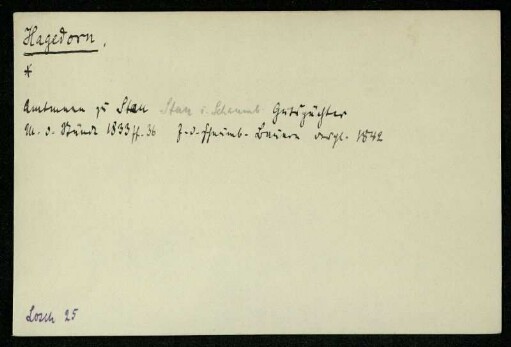 Hagedorn,
*
Amtmann zu Stau Stau i. Schaumb. Gutspächter
M. d. Stände 1833 ff. 36 Bauern vergl. 1842
Losch 25